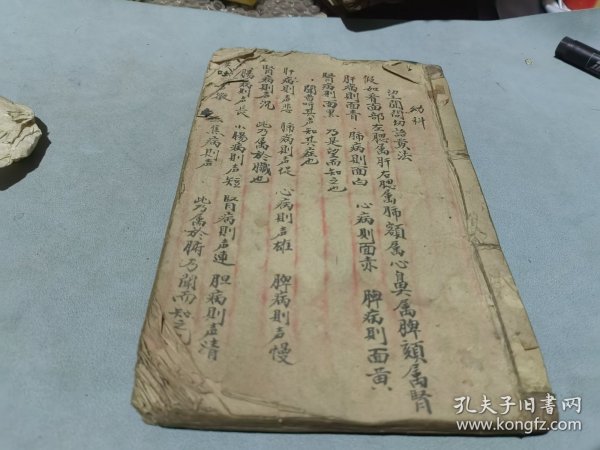 幼科
望聞問切治貴法
假如看面部左腮属肝右腮属肺額属心鼻属脾頦属腎
肝病則面青 肺病則面白 心病則面赤 脾病則面黄
腎病則面黑 乃是望而知之也
聞者听其声知其症也
肝病則声悲 肺病則声促 心病則声雄 脾病則声慢
腎病則声沉 此乃属於臟也
腸病則声長 小腸病則声短 腎病則声速 胆病則声清
焦病則声 此乃属於腑乃聞而知之也
孔夫子旧书网
www.kongfz.com